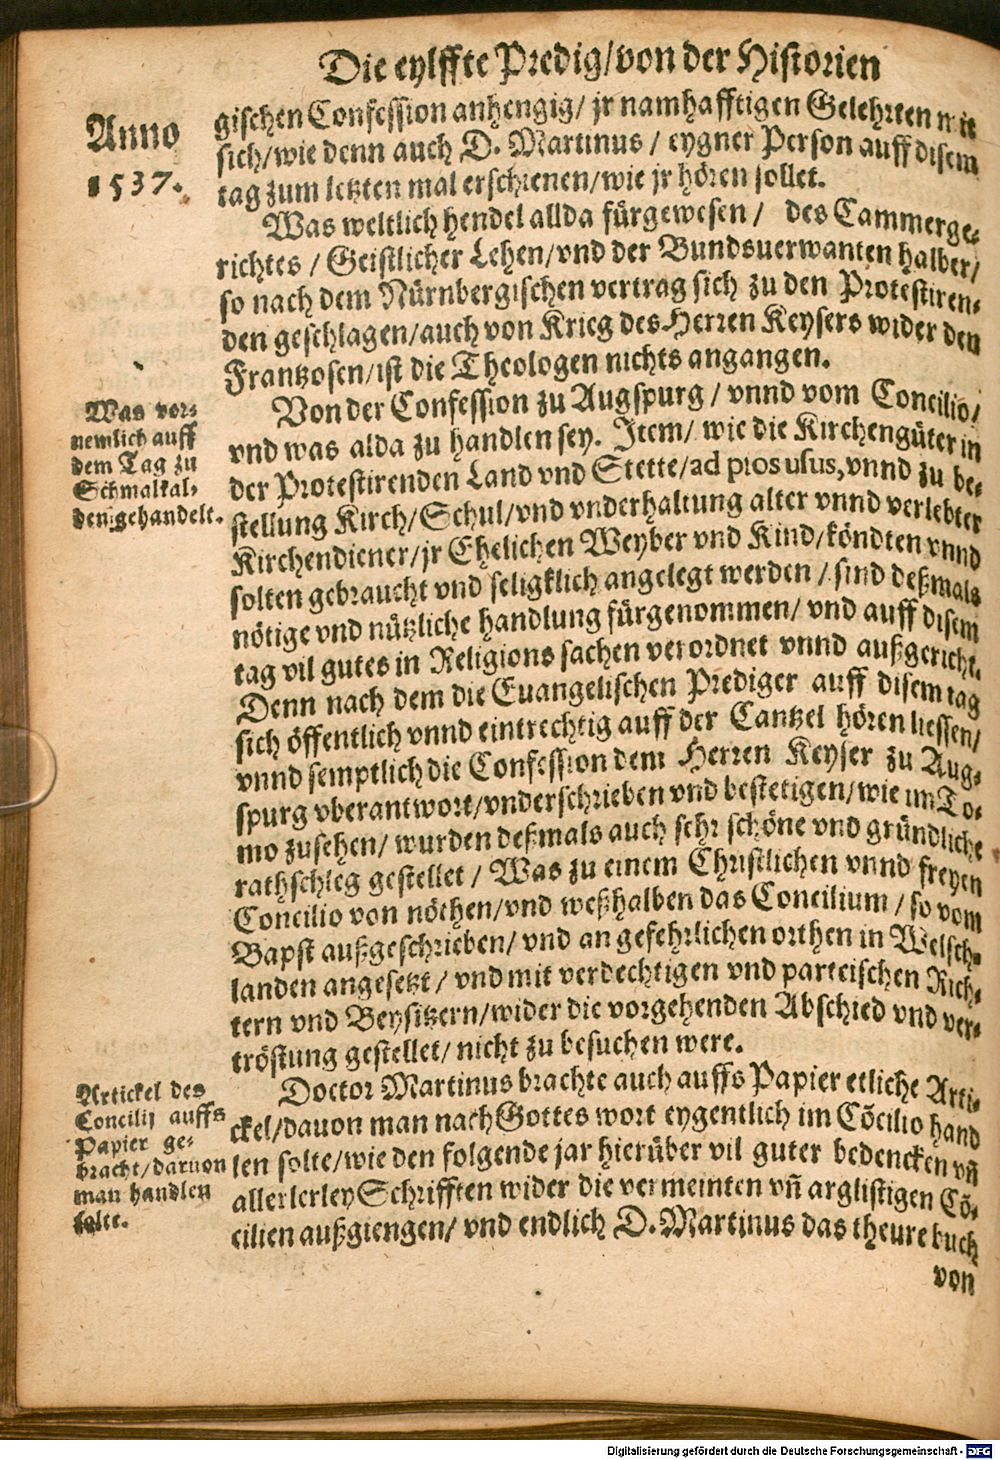 Die eylffte Predig/von der Historien
Anno
1537.
gischen Confession anhengig/ jr namhafftigen Gelehrten mit
sich/wie denn auch D. Martinus / eygner Person auff disem
tag zum letzten mal erschienen/wie jr hören sollet.
Was weltlich hendel allda fürgewesen / des Cammerge-
richtes / Geistlicher Lehen/vnd der Bundsuerwanten halber/
so nach dem Nürnbergischen vertrag sich zu den Protestiren-
den geschlagen/auch von Krieg des Herren Keysers wider den
Frantzosen/ist die Theologen nichts angangen.
Was vor-
nemlich auff
dem Tag zu
Schmalkal-
den gehandelt.
Von der Confession zu Augspurg / vnnd vom Concilio/
vnd was alda zu handlen sey. Item/ wie die Kirchengüter in
der Protestirenden Land vnd Stette/ad pios usus, vnnd zu be-
stellung Kirch/Schul/vnd vnderhaltung alter vnnd verlebter
Kirchendiener/jr Ehelichen Weyber vnd Kind/köndten vnnd
solten gebraucht vnd seligklich angelegt werden / sind deßmals
nötige vnd nützliche handlung fürgenommen/ vnd auff disem
tag vil gutes in Religions sachen verordnet vnnd außgericht.
Denn nach dem die Euangelischen Prediger auff disem tag
sich öffentlich vnnd eintrechtig auff der Cantzel hören liessen/
vnnd semptlich die Confession dem Herren Keyser zu Aug-
spurg vberantwort/vnderschrieben vnd bestetigen/wie im To-
mo zusehen/ wurden deßmals auch sehr schöne vnd gründliche
rathschleg gestellet / Was zu einem Christlichen vnnd freyen
Concilio von nöthen/vnd weßhalben das Concilium / so vom
Bapst außgeschrieben/ vnd an gefehrlichen orthen in Welsch-
landen angesetzt / vnd mit verdechtigen vnd parteischen Rich-
tern vnd Beysitzern/wider die vorgehenden Abschied vnd ver-
tröstung gestellet/ nicht zu besuchen were.
Artickel des
Concilij auffs
Papier ge-
bracht/daruon
man handlen
solte.
Doctor Martinus brachte auch auffs Papier etliche Arti-
ckel/dauon man nach Gottes wort eygentlich im Cōcilio hand
len solte/wie den folgende jar hierüber vil guter bedencken vñ
allerlerley Schrifften wider die vermeinten vñ arglistigen Cō-
cilien außgiengen/ vnd endlich D. Martinus das theure buch
von
Digitalisierung gefördert durch die Deutsche Forschungsgemeinschaft - DFG